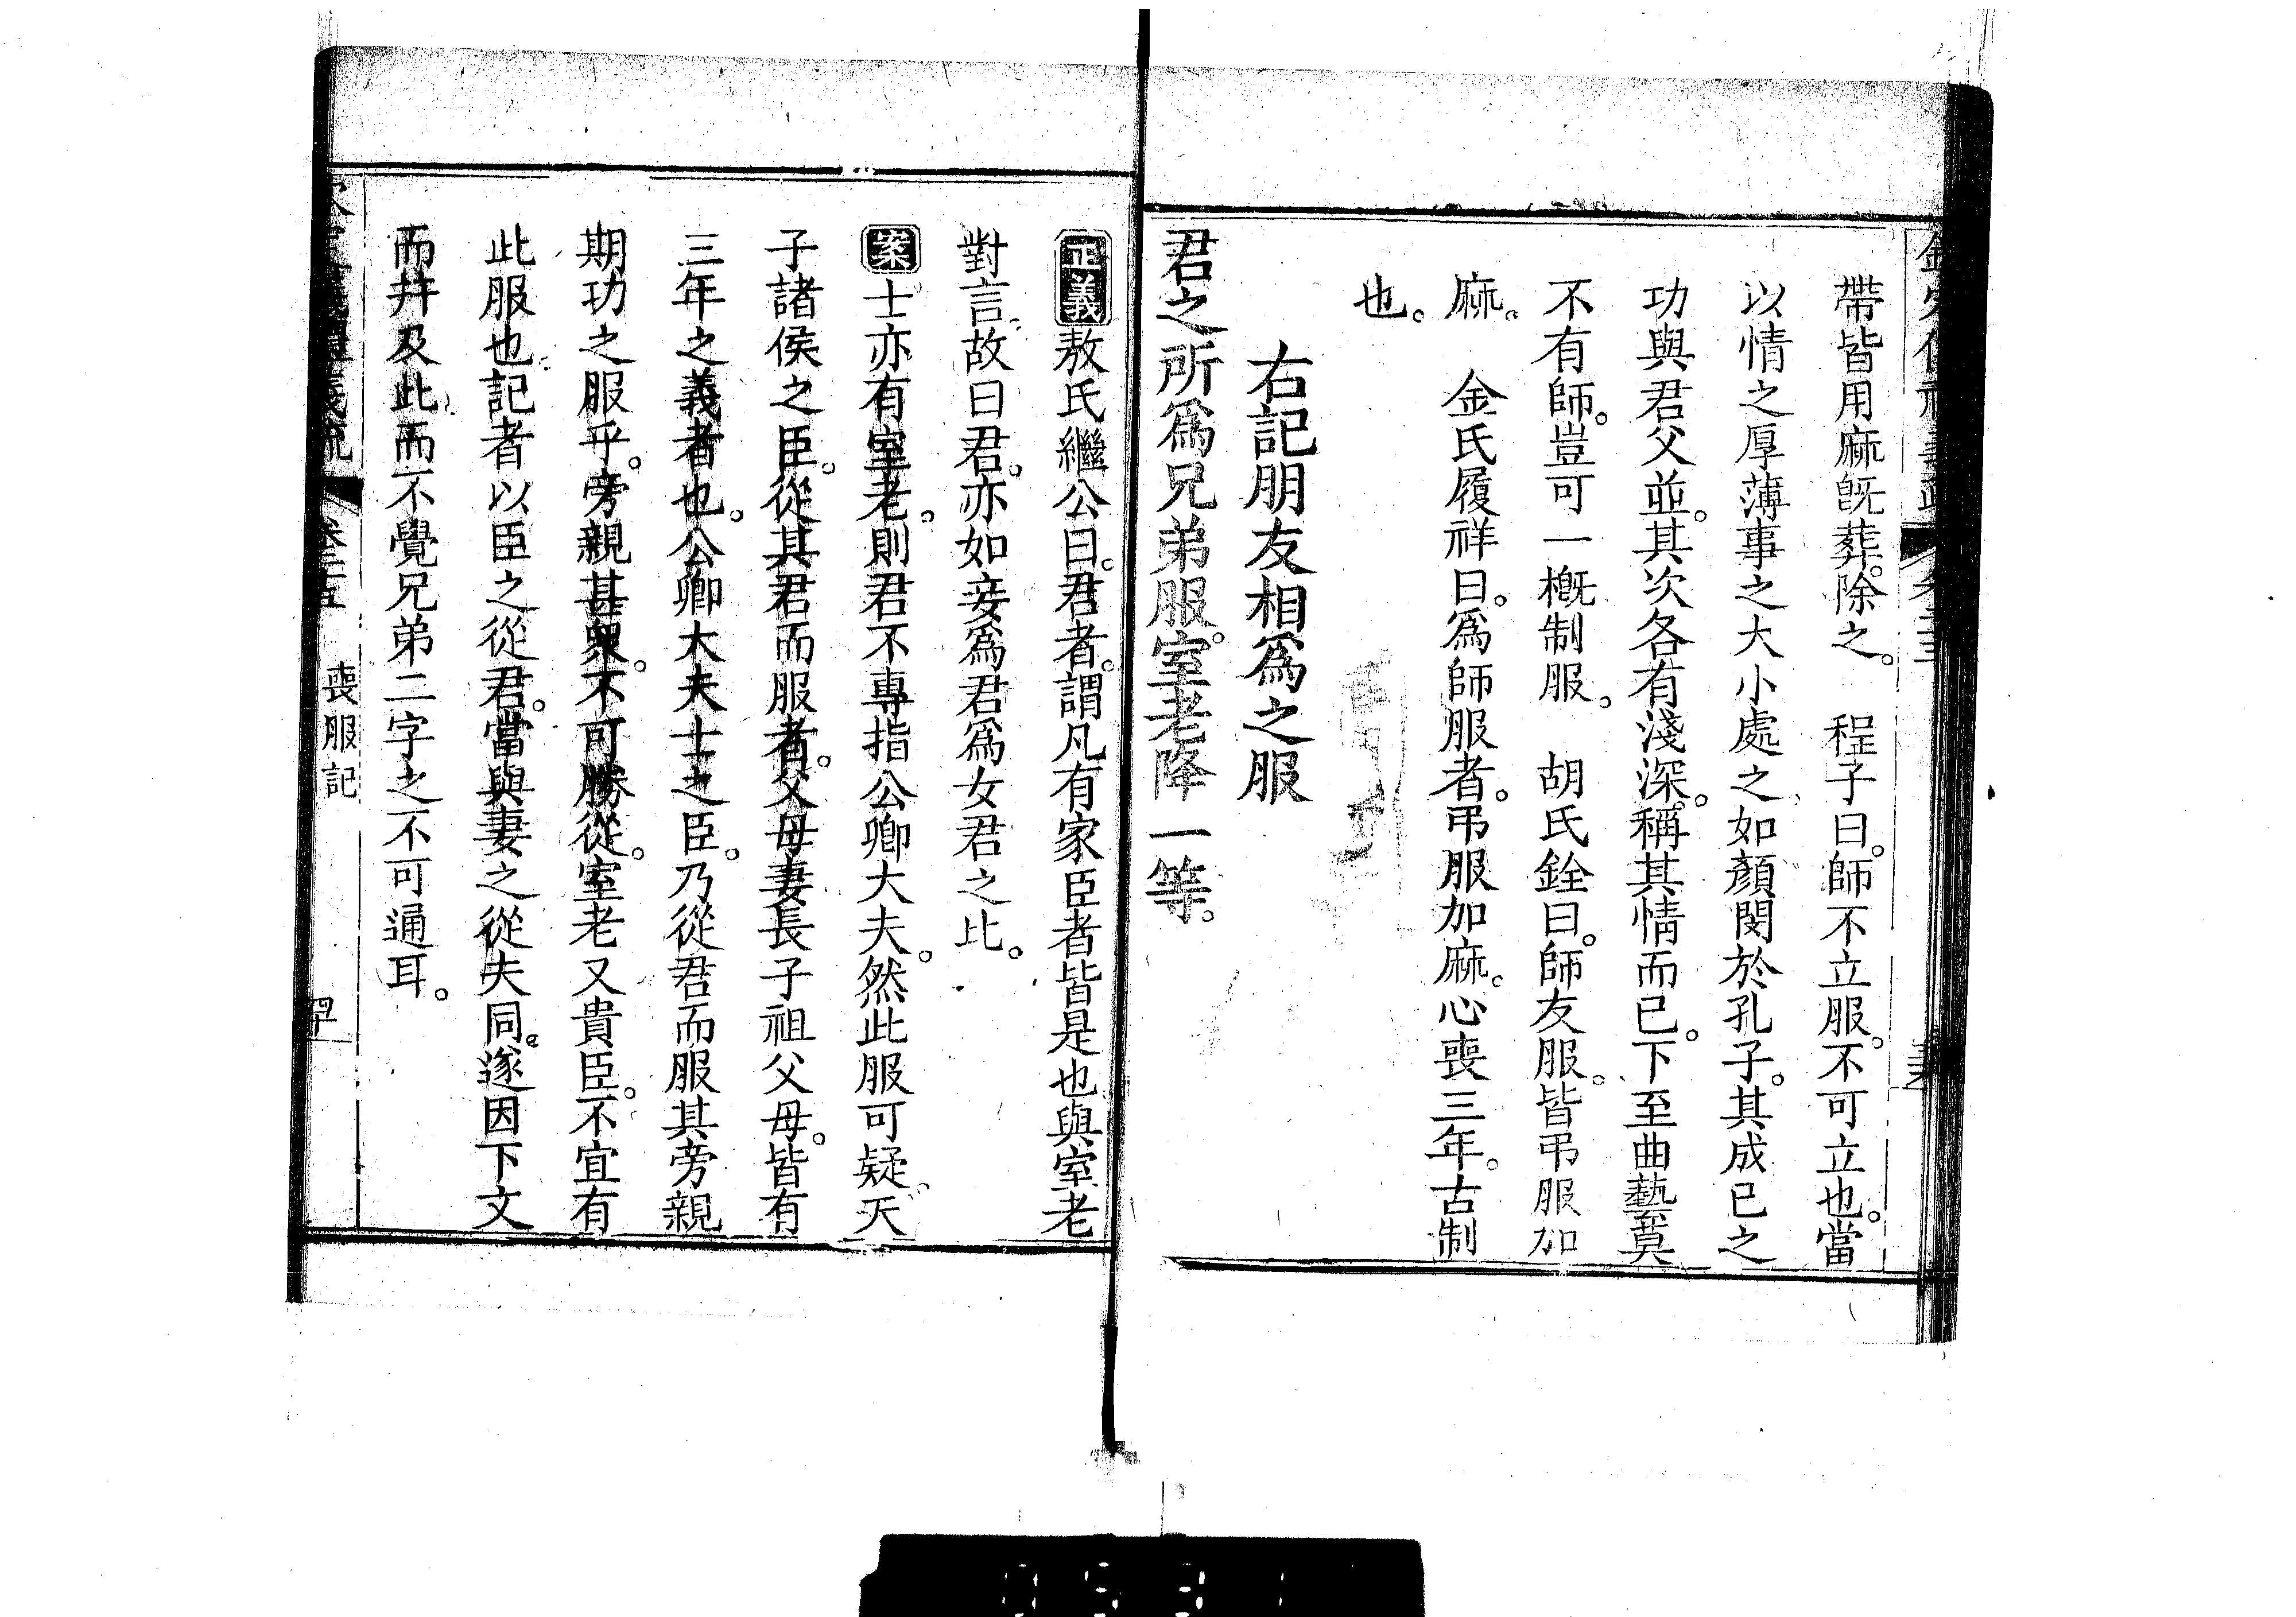 帶皆用麻旣葬。除之。　程子曰。師不立服。不可立也。當
以情之厚薄事之大小處之如顏閔於孔子。其成已之
功與君父並。其次各有淺深。稱其情而已。下至曲藝莫
不有師。豈可一槪制服。　胡氏銓曰。師友服。皆弔服加
麻。　金氏履祥曰。爲師服者。弔服加麻。心喪三年。古制
也。
右記朋友相爲之服
君之所爲兄弟服。室老降一等。
正義敖氏繼公曰。君者。謂凡有家臣者皆是也與室老
對言。故曰君。亦如妾爲君爲女君之比。
案士亦有室老。則君不專指公卿大夫。然此服可疑。天
子諸侯之臣。從其君而服者。父母妻長子祖父母。皆有
三年之義者也。公卿大夫士之臣。乃從君而服其旁親
期功之服乎。旁親甚衆。不可勝從。室老又貴臣。不宜有
此服也。記者以臣之從君。當與妻之從夫同。遂因下文
而幷及此。而不覺兄弟二字之不可通耳。
義禮義疏　卷二五　喪服記